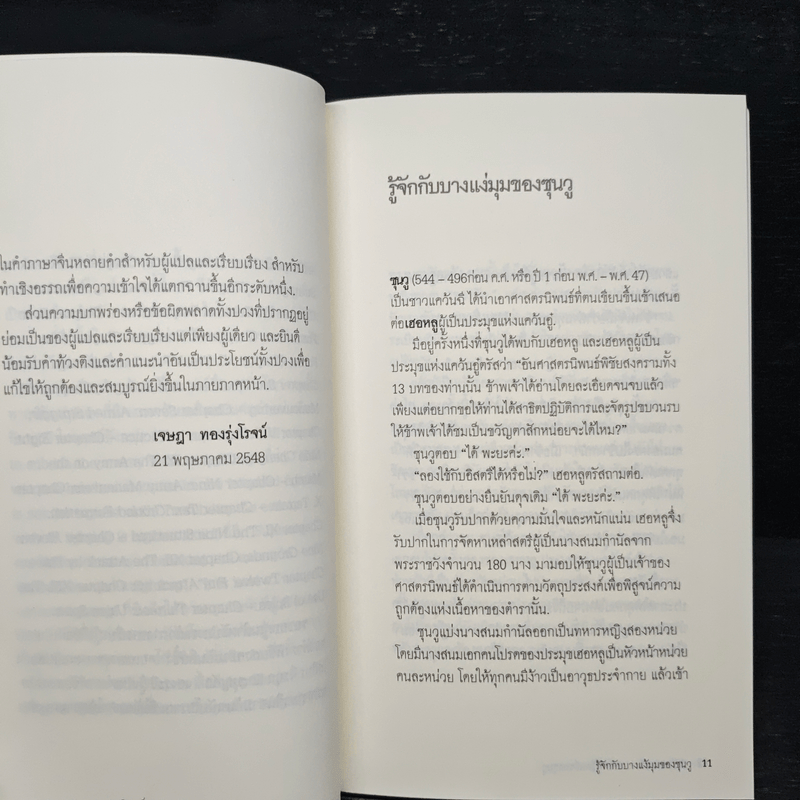 ในคำภาษาจีนหลายคำสำหรับผู้แปลและเรียบเรียง สำหรับ
ทำเชิงอรรถเพื่อความเข้าใจได้แตกฉานขึ้นอีกระดับหนึ่ง.
ส่วนความบกพร่องหรือข้อผิดพลาดทั้งปวงที่ปรากฏอยู่
ย่อมเป็นของผู้แปลและเรียบเรียงแต่เพียงผู้เดียว และยินดี
น้อมรับคำท้วงติงและคำแนะนำอันเป็นประโยชน์ทั้งปวงเพื่อ
แก้ไขให้ถูกต้องและสมบูรณ์ยิ่งขึ้นในภายภาคหน้า.
เจษฎา ทองรุ่งโรจน์
21 พฤษภาคม 2548
รู้จักกับบางแง่มุมของซุนวู
ซุนวู (544 – 496ก่อน ค.ศ. หรือ ปี 1 ก่อน พ.ศ. – พ.ศ. 47)
เป็นชาวแคว้นฉี ได้นำเอาศาสตรนิพนธ์ที่ตนเขียนขึ้นเข้าเสนอ
ต่อเฮอหลูผู้เป็นประมุขแห่งแคว้นอู๋.
มีอยู่ครั้งหนึ่งที่ซุนวูได้พบกับเฮอหลู และเฮอหลูผู้เป็น
ประมุขแห่งแคว้นอู๋ตรัสว่า "อันศาสตรนิพนธ์พิชัยสงครามทั้ง
13 บทของท่านนั้น ข้าพเจ้าได้อ่านโดยละเอียดจนจบแล้ว
เพียงแต่อยากขอให้ท่านได้สาธิตปฏิบัติการและจัดรูปขบวนรบ
ให้ข้าพเจ้าได้ชมเป็นขวัญตาสักหน่อยจะได้ไหม?"
ซุนวูตอบ "ได้ พะยะค่ะ."
"ลองใช้กับอิสตรีได้หรือไม่?" เฮอหลูตรัสถามต่อ.
ซุนวูตอบอย่างยืนยันดุจเดิม "ได้ พะยะค่ะ."
เมื่อซุนวูรับปากด้วยความมั่นใจและหนักแน่น เฮอหลูจึง
รับปากในการจัดหาเหล่าสตรีผู้เป็นนางสนมกำนัลจาก
พระราชวังจำนวน 180 นาง มามอบให้ซุนวูผู้เป็นเจ้าของ
ศาสตรนิพนธ์ได้ดำเนินการตามวัตถุประสงค์เพื่อพิสูจน์ความ
ถูกต้องแห่งเนื้อหาของตำรานั้น.
ซุนวูแบ่งนางสนมกำนัลออกเป็นทหารหญิงสองหน่วย
โดยมีนางสนมเอกคนโปรดของประมุขเฮอหลูเป็นหัวหน้าหน่วย
คนละหน่วย โดยให้ทุกคนมีง้าวเป็นอาวุธประจำกาย แล้วเข้า
รู้จักกับบางแง่มุมของซุนวู 11